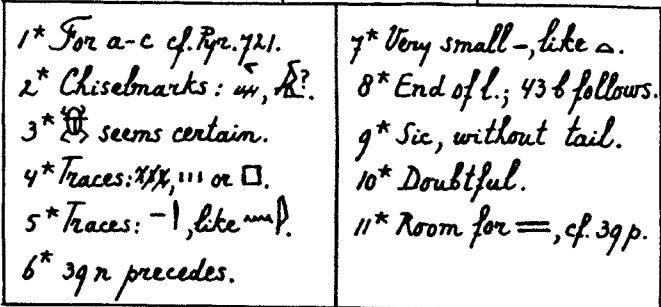 1* For a-c cf. Pyr. 721.
2* Chiselmarks: , ?.
3* 𓆣 seems certain.
4* Traces: , ııı or □.
5* Traces: , like .
6* 39 n precedes.
7* Very small –, like ⌓.
8* End of l.; 43 b follows.
9* Sic, without tail.
10* Doubtful.
11* Room for =, cf. 39 p.